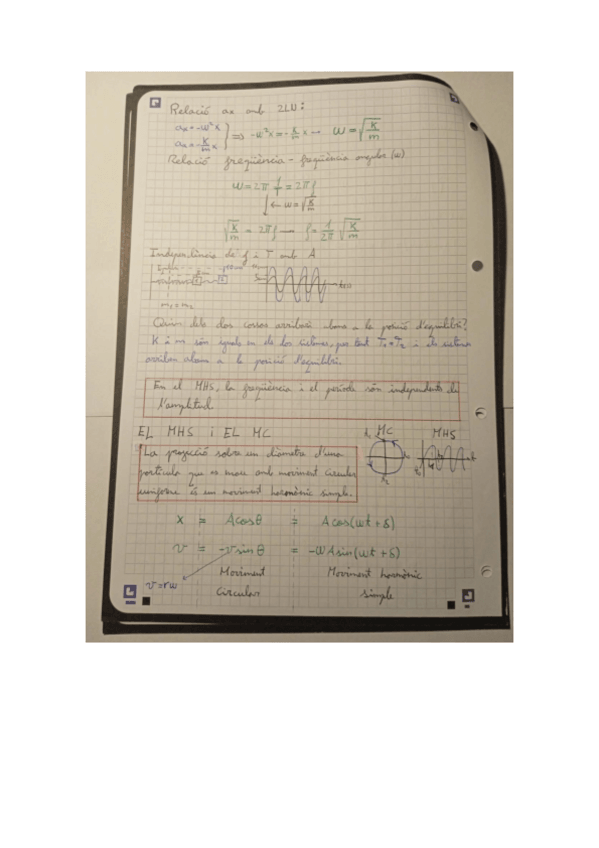 Relació ax amb 2LN:
ax = -ω²x
ax = -K/m x } ⇒ -ω²x = -K/m x → ω = √(K/m)
Relació freqüència - freqüència angular (ω)
ω = 2π 1/T = 2πf
↓ ← ω = √(K/m)
√(K/m) = 2πf → f = 1/2π √(K/m)
Independència de f i T amb A
m₁ = m₂
Quin dels dos cossos arribarà abans a la posició d'equilibri?
K i m són iguals en els dos sistemes, per tant T₁ = T₂ i els sistemes
arriben alhora a la posició d'equilibri.
En el MHS, la freqüència i el període són independents de
l'amplitud
EL MHS i EL MC
MC MHS
La projecció sobre un diàmetre d'una
partícula que es mou amb moviment circular
uniforme és un moviment harmònic simple.
x = Acosθ = Acos(ωt + δ)
v = -vsinθ = -ωAsin(ωt + δ)
v = rω
Moviment Moviment harmònic
Circular simple